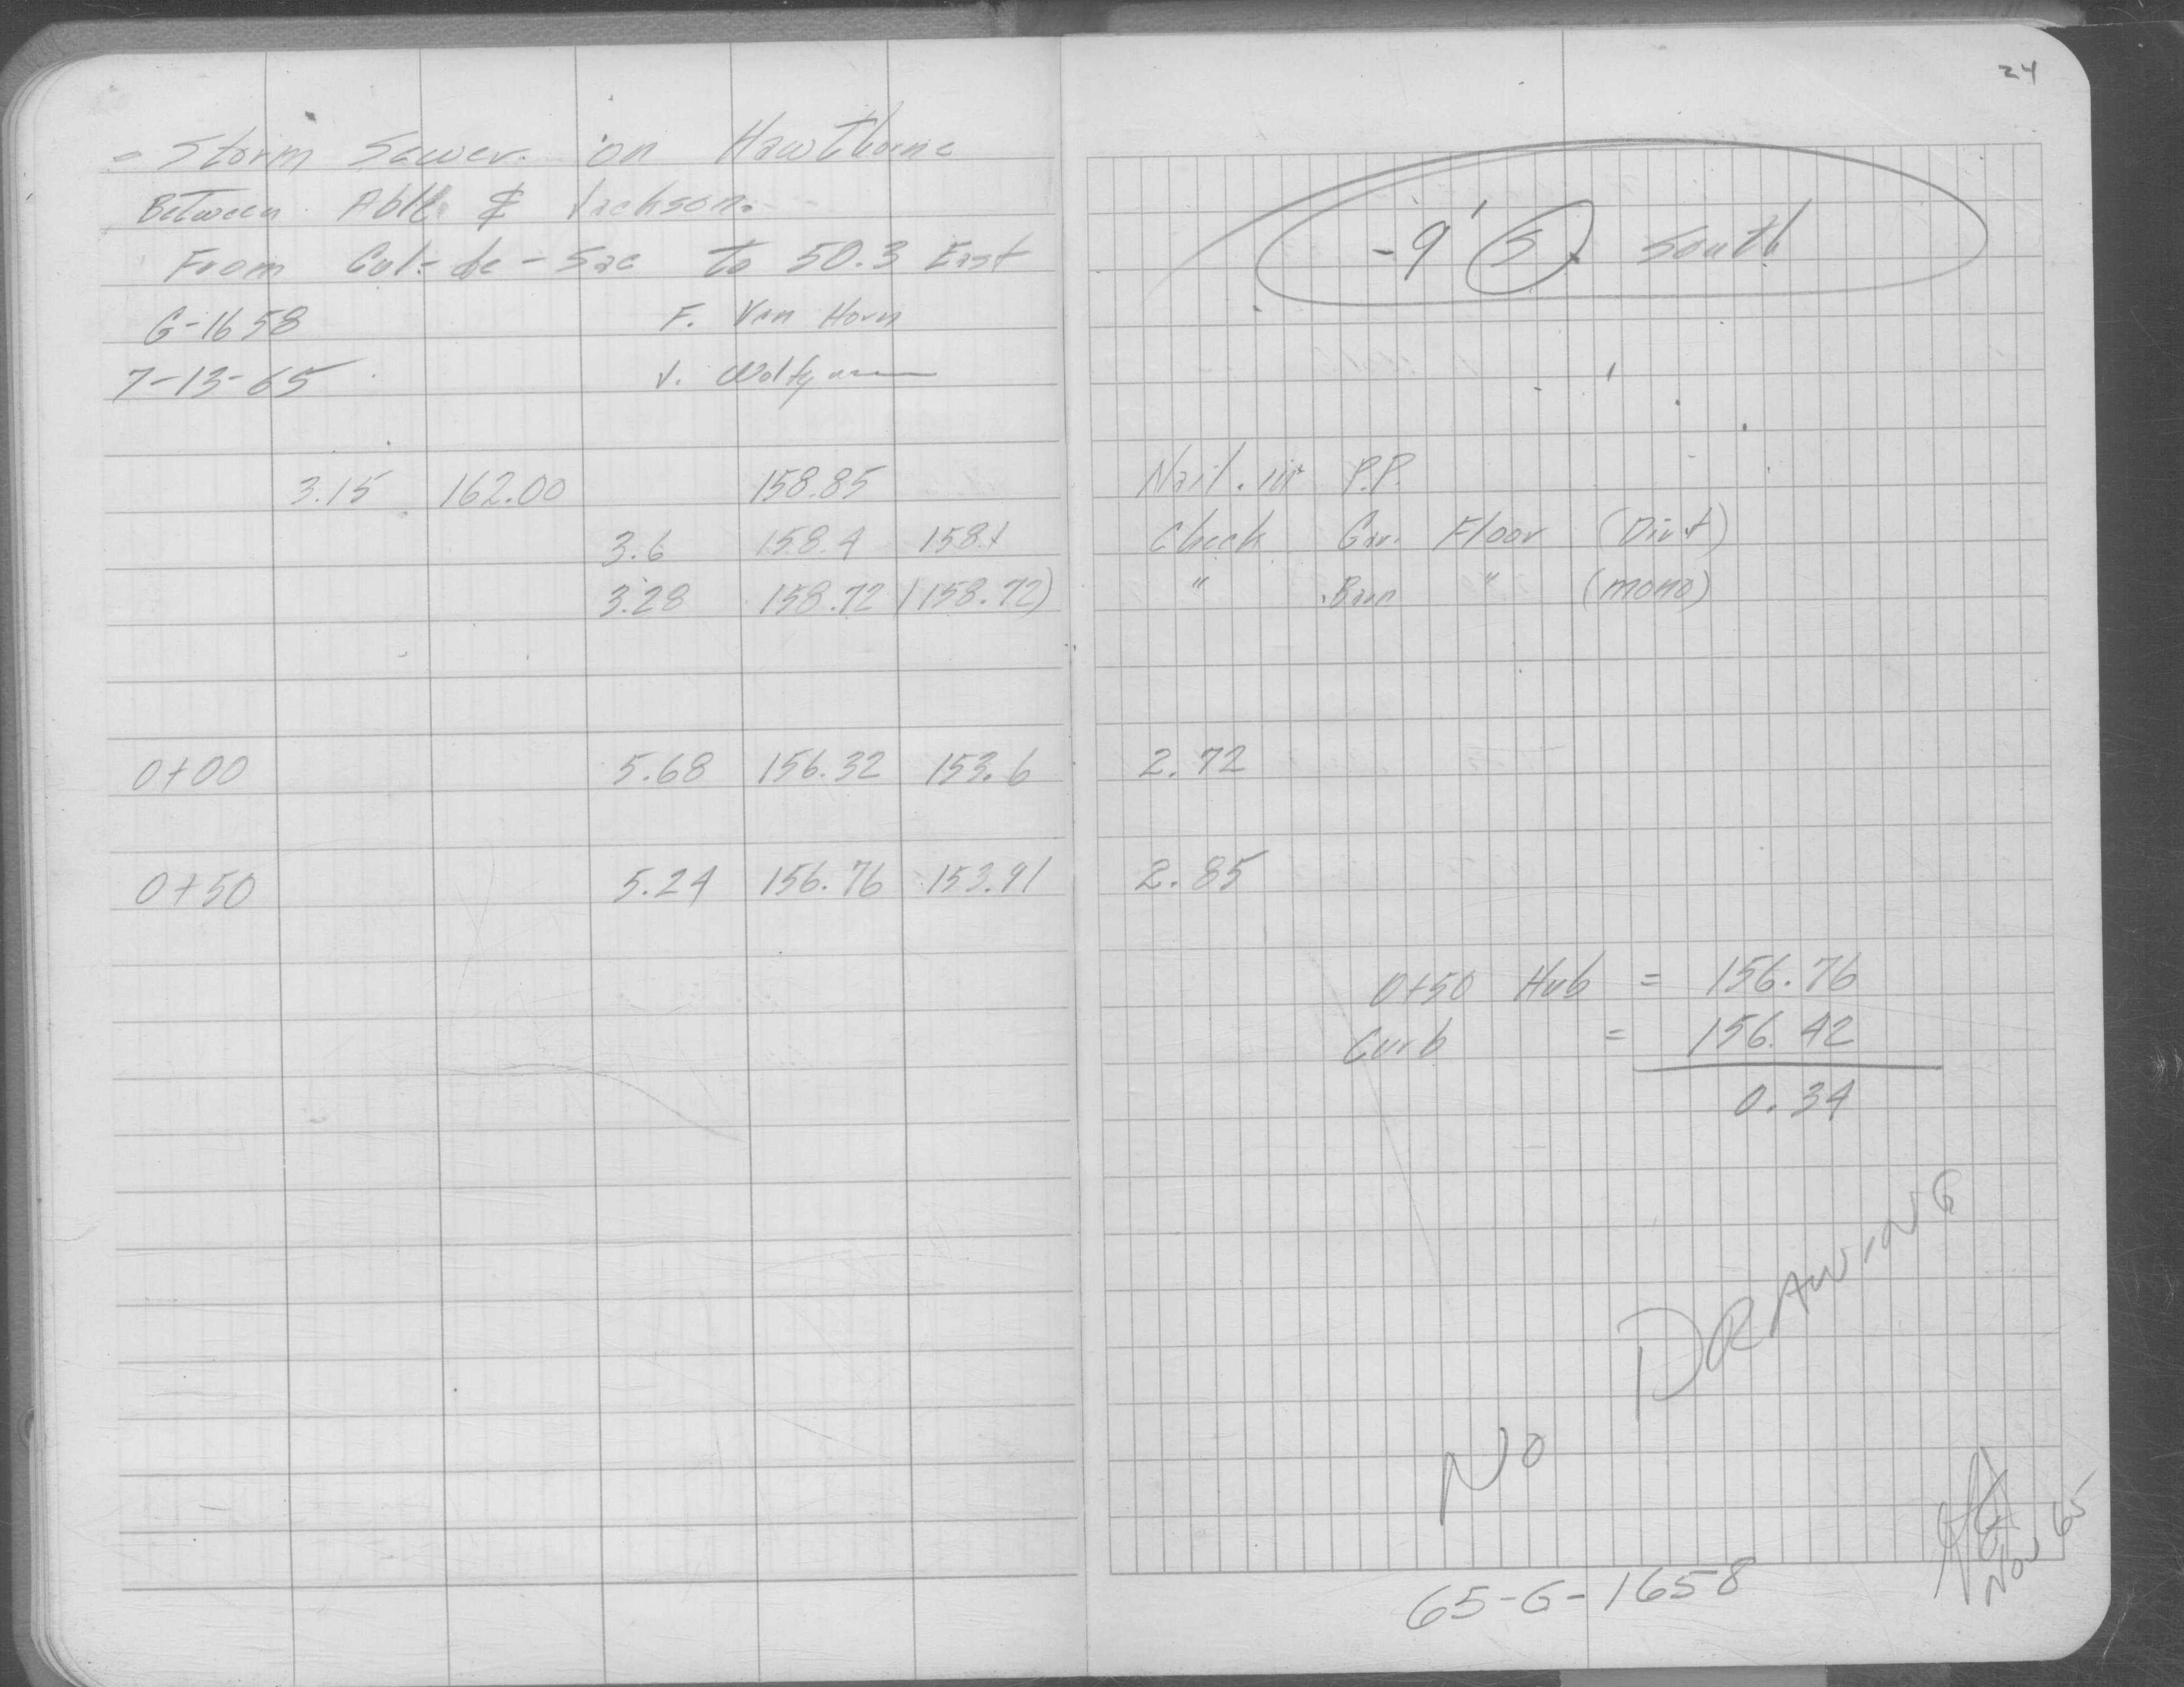 24
Storm Sewer on Hawthorne
Between Able & Jackson.
From Cul-de-Sac to 50.3 East
G-1658 F. Van Horn
7-13-65 J.
-9' S South
3.15 162.00 158.85 Nail in P.P.
3.6 158.4 158.± Check Gar. Floor (Dirt)
3.28 158.72 (158.72) " Barn " (mono)
0+00 5.68 156.32 153.6 2.72
0+50 5.24 156.76 153.91 2.85
0+50 Hub = 156.76
Curb = 156.42
0.34
NO DRAWING
Nov 65
65-G-1658